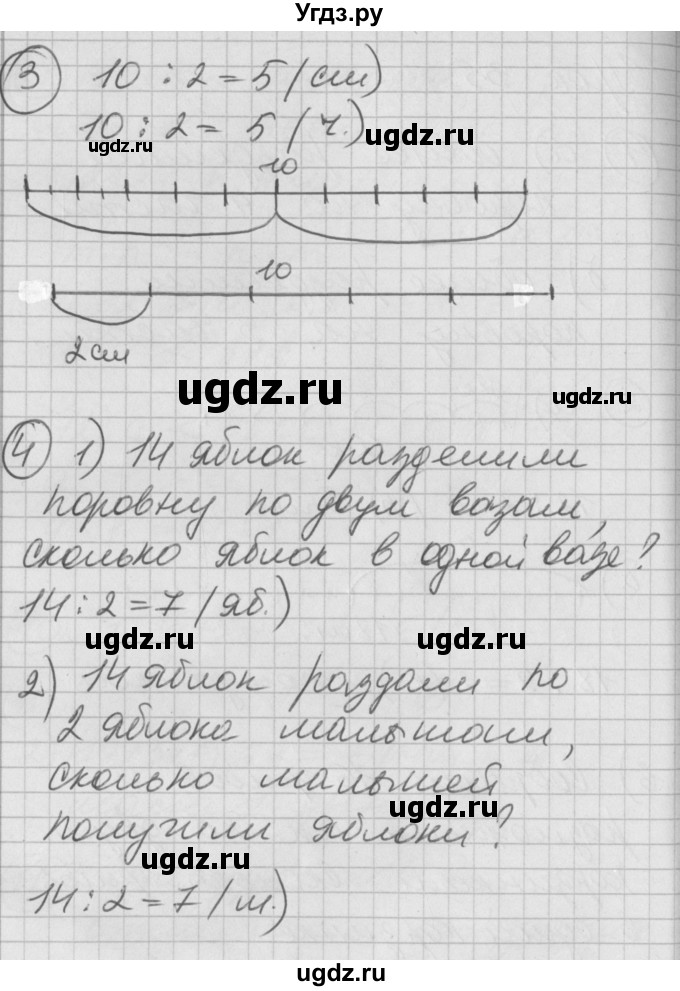 Угдз.ру
3 10 : 2 = 5 (см)
10 : 2 = 5 (ч.)
ugdz.ru
ugdz.ru
10
10
2 см
ugdz.ru
ugdz.ru
4 1) 14 яблок разделили
поровну по двум вазам,
сколько яблок в одной вазе?
14 : 2 = 7 (яб.)
ugdz.ru
ugdz.ru
2) 14 яблок раздали по
2 яблока малышам,
сколько малышей
ugdz.ru
получили яблоки?
ugdz.ru
14 : 2 = 7 (м.)
ugdz.ru